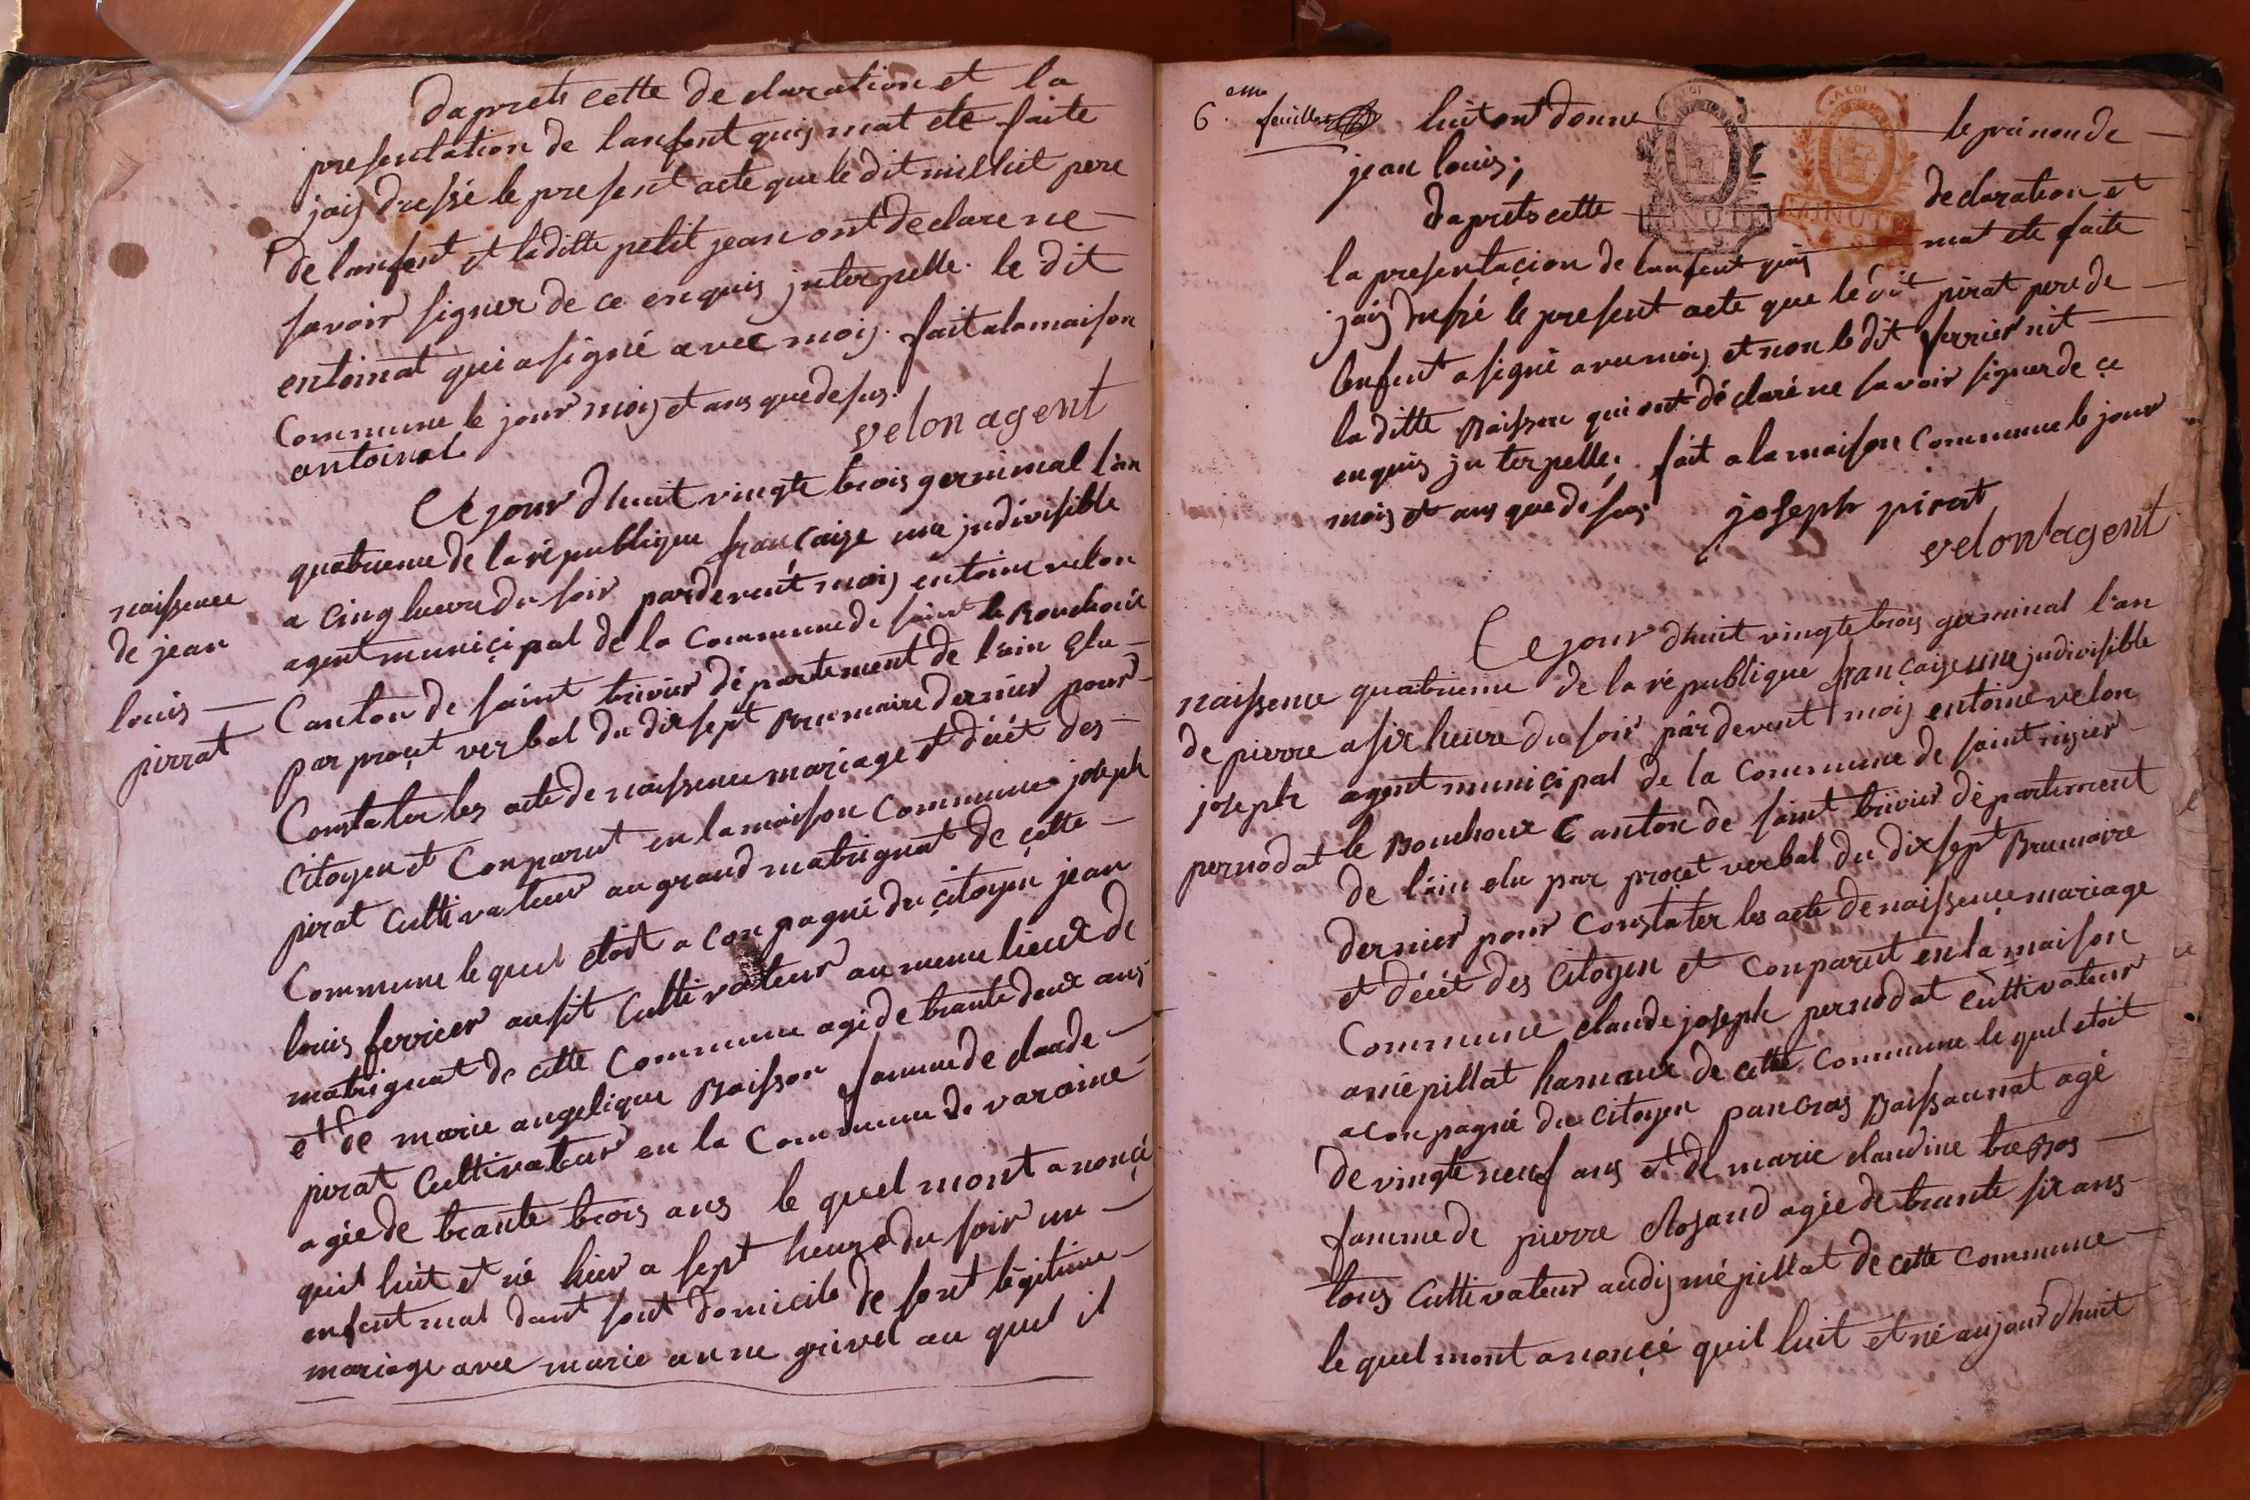 daprets cette declaration et la
presentation de lanfent quis mat ete faite
jais dressé le present acte que le dit milliit pere
de lanfent et laditte petit jean ont declare ne
savoir signer de ce enquis jnterpelle. le dit
entoinat qui a signé avec mois. fait a la maison
Commune le jour mois et ans que desus.
antoinat velon agent
Ce jour dhuit vingte trois germinal l'an
quatrieme de la république françaize une jndivisible
a cinq heure du soir pardevent mois entoine velon
naissence
de jean
louis
pirrat
agent municipal de la Commune de saint le Bouchoux
Canton de saint trivier département de l'ain Elu
par proçet verbal du dix sept Brumaire dernier pour
Constater les acte de naissence mariage et déçét des
Citoyen et Conparut en la maison Commune joseph
pirat Cultivateur au grand matrignat de cette
Commune le quel etoit a conpagné du çitoyen jean
louis ferrier ausit Cultivateur au meme lieux de
matrignat de cette Commune agé de trante deux ans
et de marie angelique Boisson famme de claude
pirat Cultivateur en la Commune de varaine
agée de trante trois ans le quel mont anonçé
quil luit et né hier a sept heure du soir un
enfent mal dant sont domicile de sont légitime
mariage avec marie anne grivel au quel il
6.eme feuillet luit ont donne le prénon de
jean louis;
daprets cette declaration et
la presentaçion de lanfent quis mat ete faite
jais dressé le present acte que le dit pirat pere de
lenfent a signé avec mois et non le dit ferrier nit
la ditte Boisson qui ont déclaré ne savoir signer de ce
enquis jnterpelle. fait a la maison Commune le jour
mois et ans que desus joseph pirat
velon agent
Ce jour dhuit vingte trois germinal l'an
naissence
de pierre
joseph
pernodat
quatrieme de la république françaize une jndivisible
a six heure du soir pardevent mois entoine velon
agent municipal de la Commune de saint nizier
le Bouchoux Canton de saint trivier département
de l'ain elu par proçet verbal du dix sept Brumaire
dernier pour Constater les acte de naissençe mariage
et déçét des Citoyen et Conparut en la maison
Commune claude joseph pernodat Cultivateur
a mépillat hamaux de cette Commune le quel etoit
aconpagné du Citoyen pancras Boissaunat agé
de vingte neuf ans et de marie claudine
famme de pierre agée de trante six ans
tous Cultivateur audis mépillat de cette Commune
le quel mont anonçé quil luit et né aujourdhuit
MINUTE
MINUTE